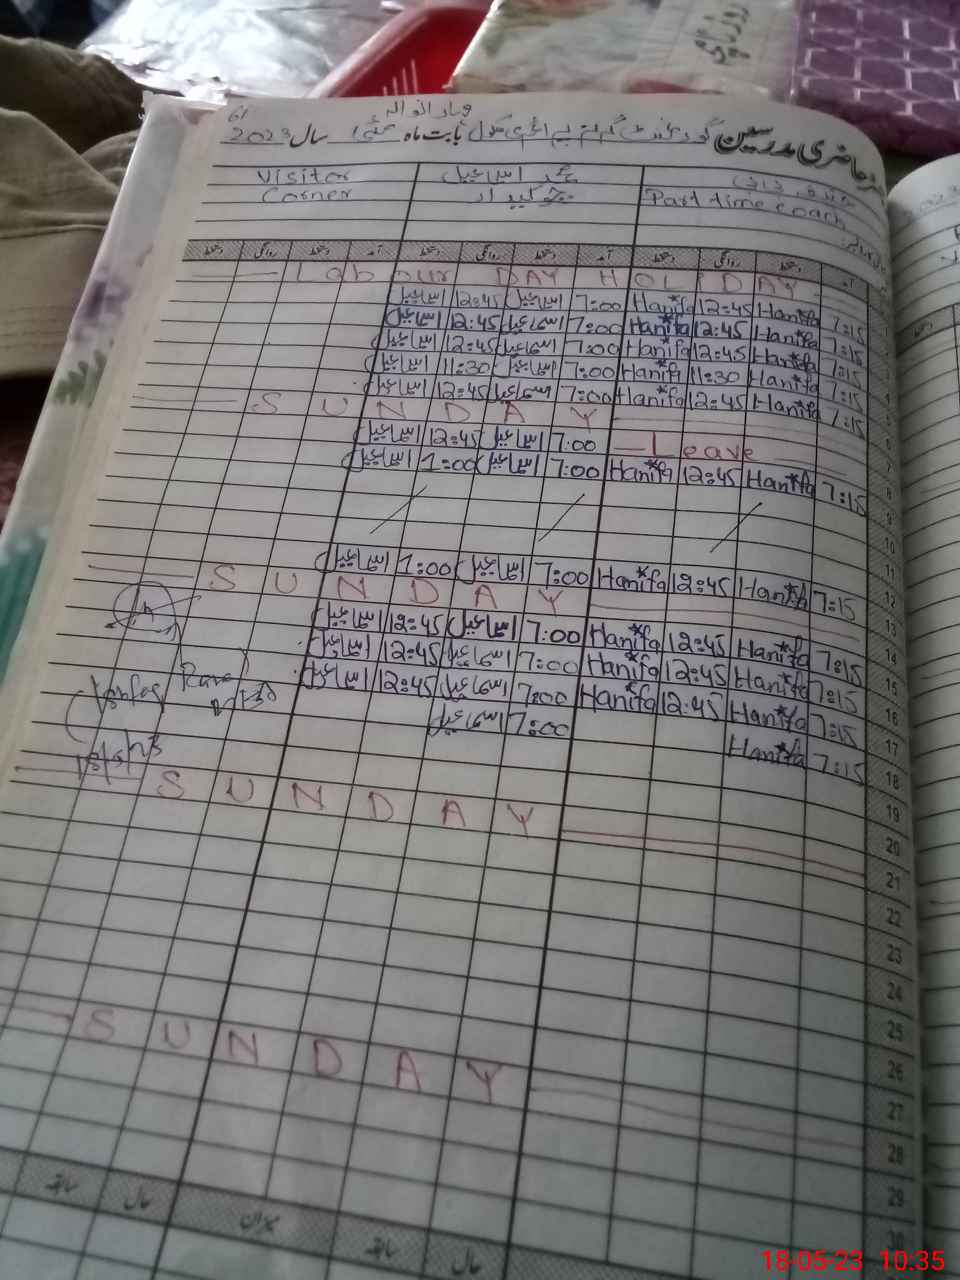 روزنامچہ
61
حاضری مدرسین گورنمنٹ گرلز بابت ماہ مئی سال 2023
Visitor محمد اسماعیل
Corner چوکیدار Part time coach
دستخط روانگی دستخط آمد دستخط روانگی دستخط آمد دستخط روانگی دستخط آمد
Labour DAY HOLIDAY
اسماعیل 12:45 اسماعیل 7:00 Hanifa 12:45 Hanifa 7:15
اسماعیل 12:45 اسماعیل 7:00 Hanifa 12:45 Hanifa 7:15
اسماعیل 12:45 اسماعیل 7:00 Hanifa 12:45 Hanifa 7:15
اسماعیل 11:30 اسماعیل 7:00 Hanifa 11:30 Hanifa 7:15
اسماعیل 12:45 اسماعیل 7:00 Hanifa 12:45 Hanifa 7:15
SUNDAY
اسماعیل 12:45 اسماعیل 7:00 Leave
اسماعیل 1:00 اسماعیل 7:00 Hanifa 12:45 Hanifa 7:15
اسماعیل 1:00 اسماعیل 7:00 Hanifa 12:45 Hanifa 7:15
SUNDAY
اسماعیل 12:45 اسماعیل 7:00 Hanifa 12:45 Hanifa 7:15
اسماعیل 12:45 اسماعیل 7:00 Hanifa 12:45 Hanifa 7:15
اسماعیل 12:45 اسماعیل 7:00 Hanifa 12:45 Hanifa 7:15
اسماعیل 7:00 Hanifa 7:15
SUNDAY
SUNDAY
4
5
6
7
8
9
10
11
12
13
14
15
16
17
18
19
20
21
22
23
24
25
26
27
28
29
30
سابقہ حال میزان سابقہ حال
18-05-23 10:35